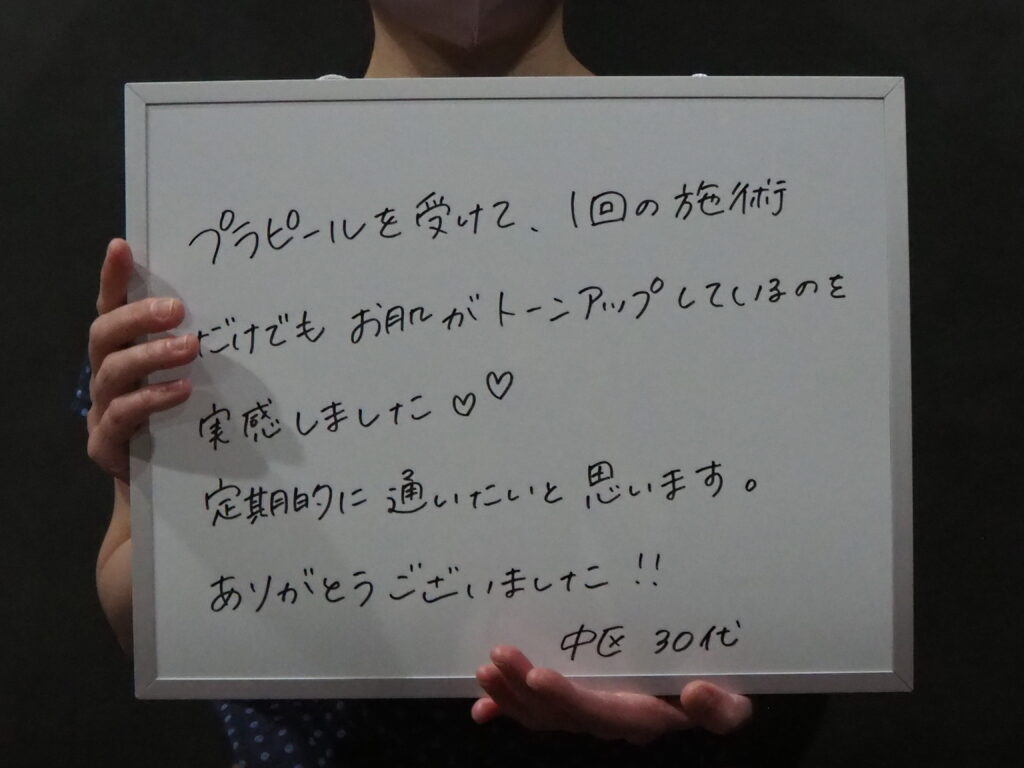 プラピールを受けて、1回の施術
だけでも お肌がトーンアップしているのを
実感しました♡♡
定期的に通いたいと思います。
ありがとうございました!!
中区 30代